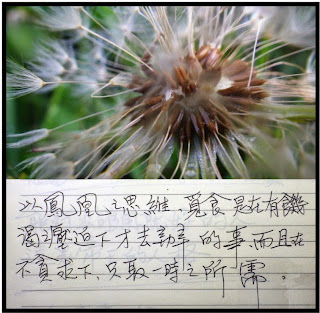 以鳳凰之思維、覓食是在有饑
渴之壓迫下才去尋 的事、而且在
不貪求下、只取一時之所需。